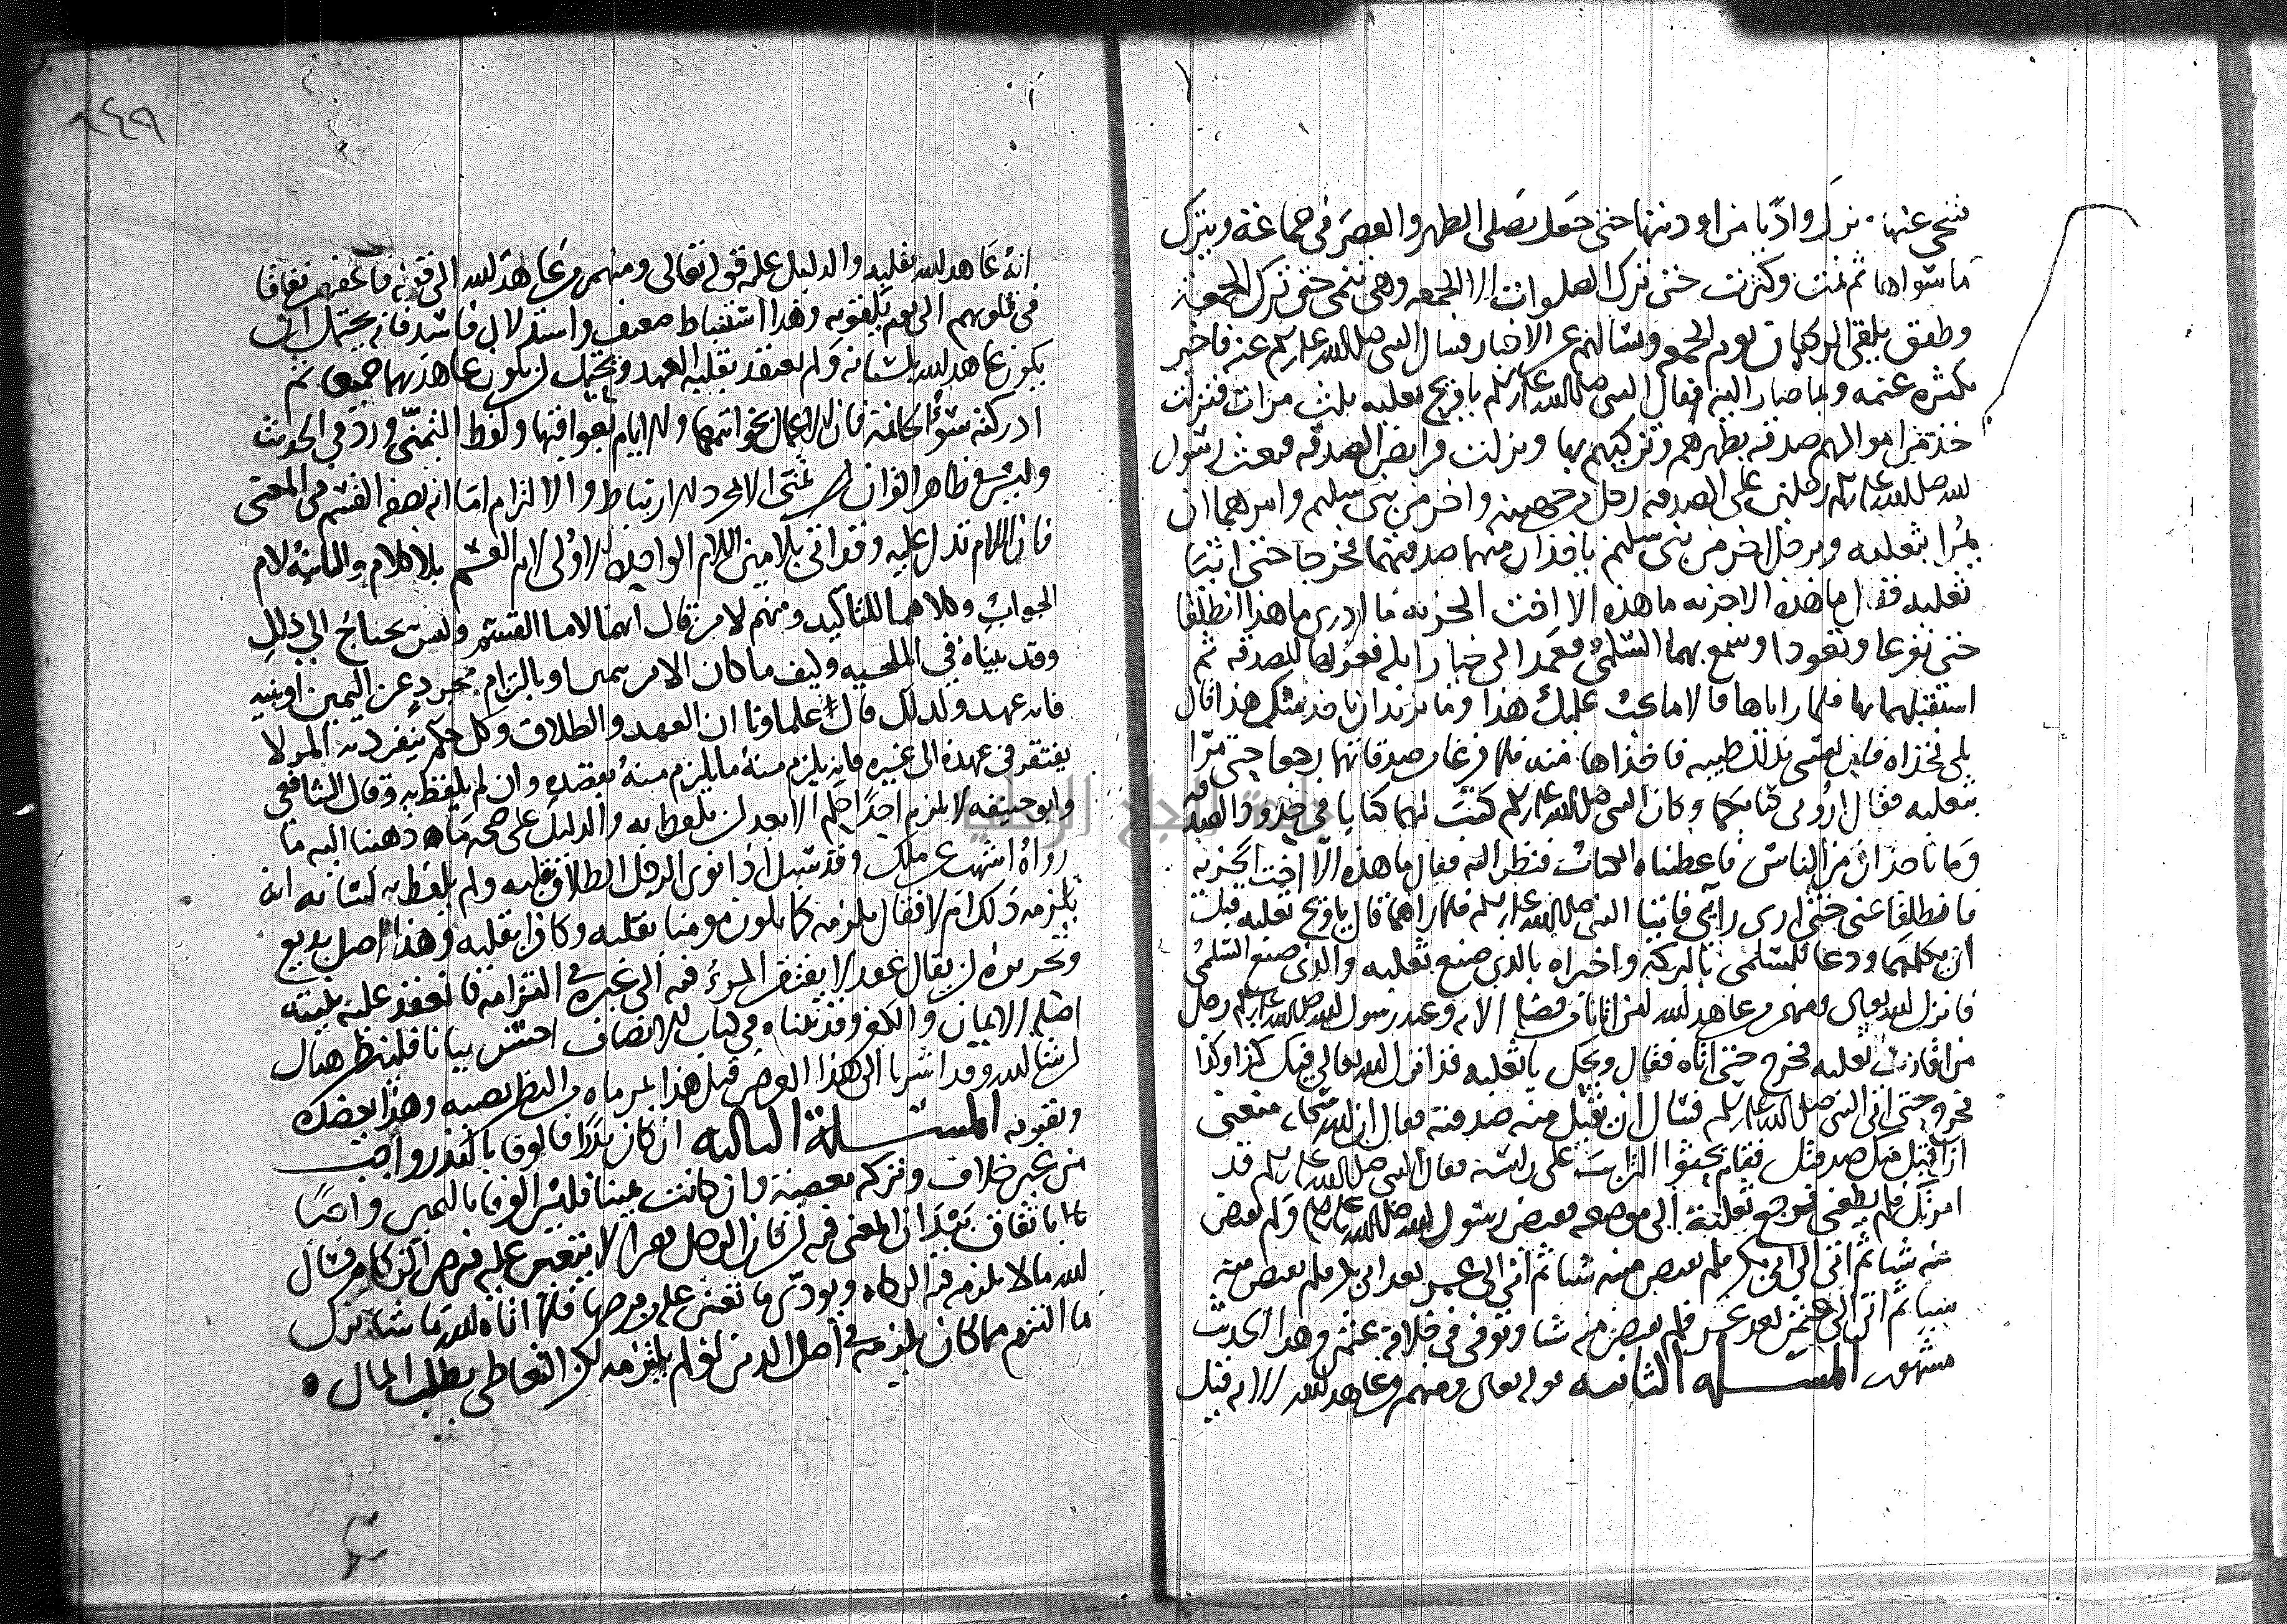 فتنحى عنها. نزل واديا من اوديتها حتى جعل يصلي الظهر والعصر في جماعة ويترك
ما سواهما ثم نمت وكثرت حتى ترك الصلوات الا الجمعه وهي تنمى حتى ترك الجمعة
وطفق يلقى الركبان يوم الجمعه ويسالهم عن الاخبار فسال النبي صلى الله عليه وسلم عنه فاخبر
بكثرة غنمه وبما صار اليه فقال النبي صلى الله عليه وسلم يا ويح ثعلبه ثلث مرات فنزلت
خذ من اموالهم صدقه تطهرهم وتزكيهم بها ونزلت فرايض الصدقه فبعث رسول
الله صلى الله عليه وسلم رجلين على الصدقه رجل من جهينه واخر من بني سليم وامرهما ان
يمرا بثعلبه وبرجل اخر من بني سليم ياخذان منهما صدقتهما فخرجا حتى اتيا
ثعلبه فقال ما هذه الا جزيه ما هذه الا اخت الجزيه ما ادري ما هذا انطلقا
حتى تفرغا وتعودا وسمع بهما السلمي فعمد الى خيار ابله فعزلها للصدقه ثم
استقبلهما بها فلما راياها قالا ما يجب عليك هذا وما نريد ان ناخذ منك هذا قال
بلى فخذاه فان نفسي بذلك طيبه فاخذاها منه فلما فرغا من صدقاتهما رجعا حتى مرا
بثعلبه فقال اروني كتابكما وكان النبي صلى الله عليه وسلم كتب لهما كتابا في حدود الصدقه
وما ياخذان من الناس فاعطياه الكتاب فنظر اليه فقال ما هذه الا اخت الجزيه
فانطلقا عني حتى ارى رايي فاتيا النبي صلى الله عليه وسلم فلما راهما قال يا ويح ثعلبه قبل
ان يكلمهما ودعا للسلمي بالبركه واخبراه بالذي صنع ثعلبه والذي صنع السلمي
فانزل الله تعالى ومنهم من عاهد الله لئن اتانا من فضله الايه وعند رسول الله صلى الله عليه وسلم رجل
من اقارب ثعلبه فخرج حتى اتاه فقال ويحك يا ثعلبه قد انزل الله تعالى فيك كذا وكذا
فخرج حتى اتى النبي صلى الله عليه وسلم فسال ان تقبل منه صدقته فقال ان الله تعالى منعني
ان اقبل منك صدقتك فقام يحثوا التراب على راسه فقال النبي صلى الله عليه وسلم قد
امرتك فلم تطعني فرجع ثعلبة الى موضعه فقبض رسول الله صلى الله عليه وسلم ولم يقبض
منه شيا ثم اتى الى ابي بكر فلم يقبض منه شيا ثم اتى الى عمر بعد ابي بكر فلم يقبض منه
شيا ثم اتى الى عثمن بعد عمر فلم يقبض منه شيا وتوفي في خلافة عثمن وهذا الحديث
مشهور المسلـه الثانيه قوله تعالى ومنهم من عاهد الله الايه قيل
انه عاهد الله بقلبه والدليل عليه قوله تعالى ومنهم من عاهد الله الى قوله فاعقبهم نفاقا
في قلوبهم الى يوم يلقونه وهذا استنباط ضعيف واستدلال فاسد فانه يحتمل ان
يكون عاهد الله بلسانه ولم يعتقد بقلبه العهد ويحتمل ان يكون عاهد بهما جميعا ثم
ادركته سوء الخاتمة فان الاعمال بخواتمها والايام بعواقبها ولفظ التمني ورد في الحديث
وليس في ظاهر القران تمنى الا مجرد الارتباط والالتزام اما انه بصفه القسم في المعنى
فان اللام تدل عليه وقد اتى بلامين اللام الواحدة الاولى لام القسم بلا كلام والثانية لام
الجواب وكلاهما للتاكيد ومنهم من قال انهما لاما القسم وليس يحتاج الى ذلك
وقد بيناه في الملجيه وكيف ما كان الامر يمين او بالتزام مجرد عن اليمين او بنيه
فانه عهد ولذلك قال علماونا ان العهد والطلاق وكل حكم ينفرد به المر ولا
يفتقر في عهده الى غيره فانه يلزم منه ما يلزم منه بقصده وان لم يلفظ به وقال الشافعي
وابو حنيفه لا يلزم احدا حكم الا بعد ان يلفظ به والدليل على صحه ما ذهبنا اليه ما
رواه اشهب عن ملك وقد سئل اذا نوى الرجل الطلاق بقلبه ولم يلفظ به بلسانه انه
يلزمه ذلك ام لا فقال يلزمه كما يكون مومنا بقلبه وكافرا بقلبه وهذا اصل بديع
وتحريره ان يقال عقد لا يفتقر المرء فيه الى غيره في التزامه فانعقد عليه بنيته
اصله الايمان والكفر وقد بيناه في كتاب الانصاف احسن بيان فلينظر هنالك
ان شا الله وقد اشرنا الى هذا الغرض قبل هذا بمرماه من النظر يصيبه وهذا يعضدك
ويقويه المســلة الثالثه ان كان نذرا فالوفا بالنذر واجب
من غير خلاف وتركه معصية وان كانت يمينا فليس الوفا باليمين واجبا
باتفاق بيد ان المعنى فيه ان كان الرجل فقيرا لا يتعين عليه فرض الزكاه فسال
الله مالا يلزمه فيه الزكاه ويودي ما تعين عليه من فرضها فلما اتاه الله ما شا ترك
ما التزم مما كان يلزمه في اصل الدين لو لم يلتزمه لكن التعاطي بطلب المال